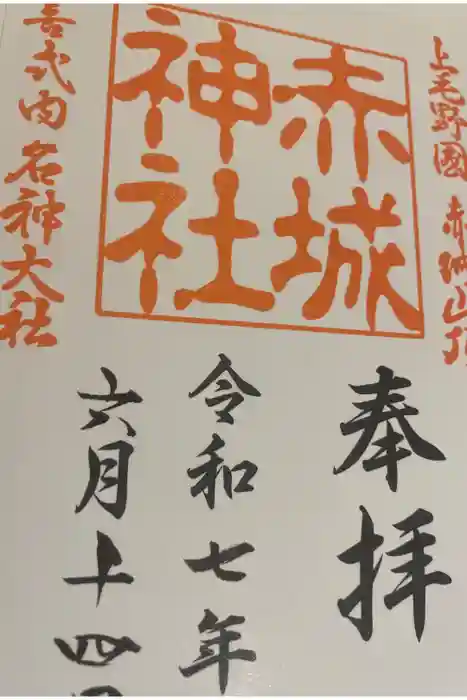 上毛野國 赤城山頂
赤城
神社
喜式内 名神大社
奉拝
令和七年
六月十四日